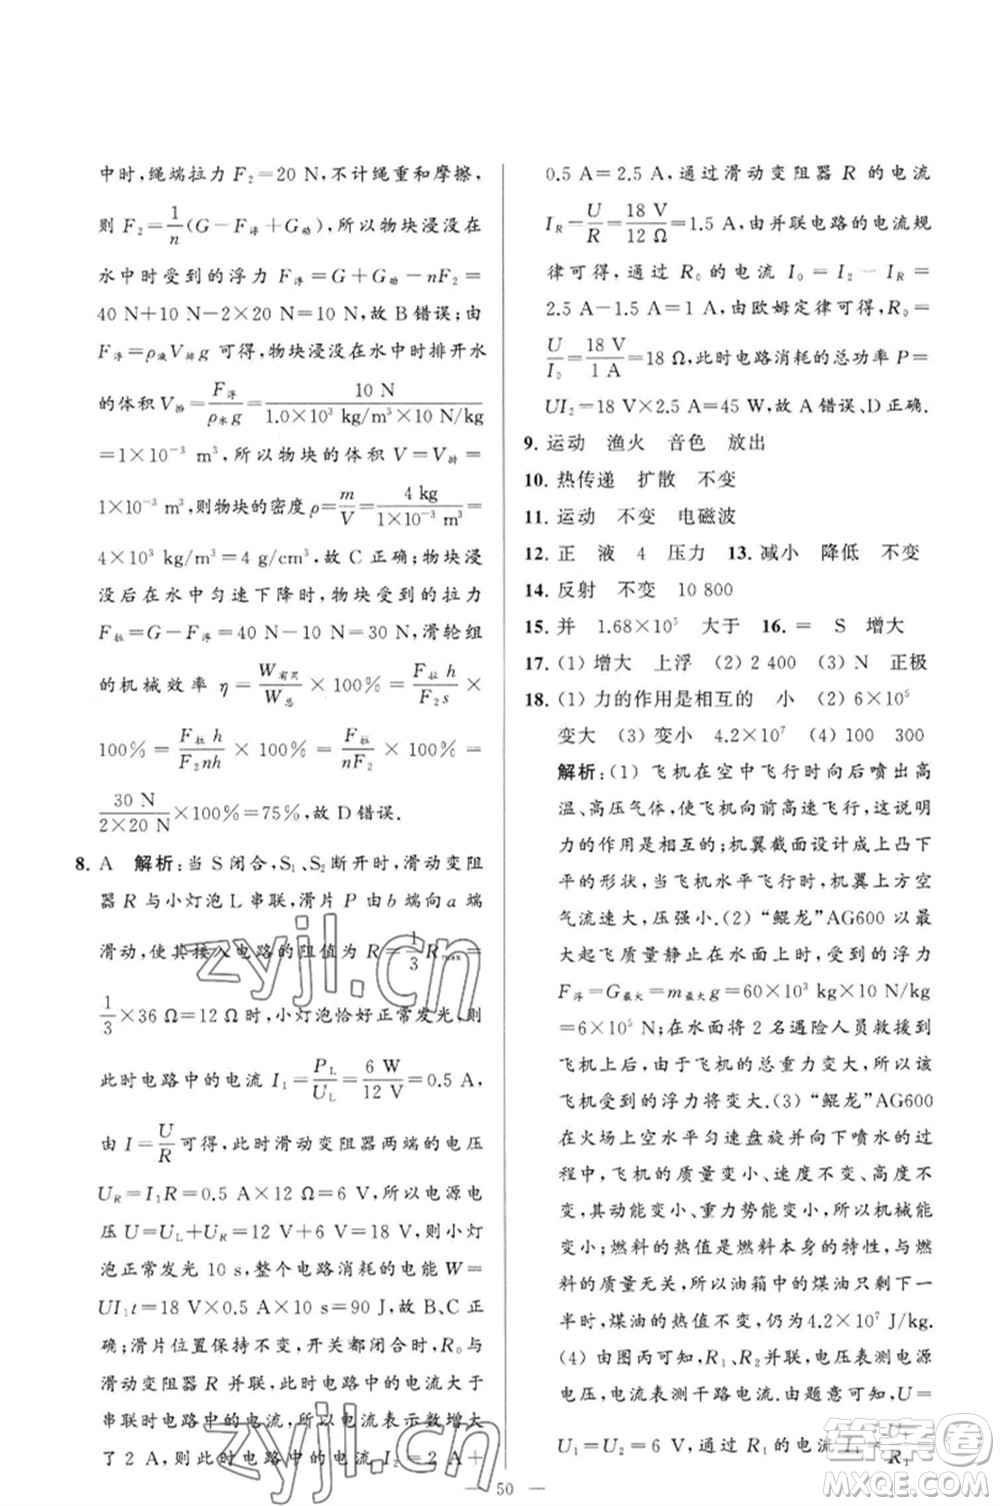 中时,绳端拉力 F₂=20 N,不计绳重和摩擦,
则 F₂=1/n(G−F浮+G动),所以物块浸没在
水中时受到的浮力 F浮=G+G动−nF₂=
40 N+10 N−2×20 N=10 N,故 B 错误;由
F浮=ρ液V排g 可得,物块浸没在水中时排开水
的体积 V排=F浮/ρ水g=10 N/1.0×10³ kg/m³×10 N/kg
=1×10⁻³ m³,所以物块的体积 V=V排=
1×10⁻³ m³,则物块的密度 ρ=m/V=4 kg/1×10⁻³ m³=
4×10³ kg/m³=4 g/cm³,故 C 正确;物块浸
没后在水中匀速下降时,物块受到的拉力
F拉=G−F浮=40 N−10 N=30 N,滑轮组
的机械效率 η=W有用/W总×100%=F拉h/F₂s×
100%=F拉h/F₂nh×100%=F拉/F₂n×100%=
30 N/2×20 N×100%=75%,故 D 错误.
8. A 解析:当 S 闭合,S₁、S₂断开时,滑动变阻
器 R 与小灯泡 L 串联,滑片 P 由 b 端向 a 端
滑动,使其接入电路的阻值为 R=1/3Rmax=
1/3×36 Ω=12 Ω 时,小灯泡恰好正常发光,则
此时电路中的电流 I₁=P_L/U_L=6 W/12 V=0.5 A,
由 I=U/R 可得,此时滑动变阻器两端的电压
U_R=I₁R=0.5 A×12 Ω=6 V,所以电源电
压 U=U_L+U_R=12 V+6 V=18 V,则小灯
泡正常发光 10 s,整个电路消耗的电能 W=
UI₁t=18 V×0.5 A×10 s=90 J,故 B、C 正
确;滑片位置保持不变,开关都闭合时,R₀与
滑动变阻器 R 并联,此时电路中的电流大于
串联时电路中的电流,所以电流表示数增大
了 2 A,则此时电路中的电流 I₂=2 A+
0.5 A=2.5 A,通过滑动变阻器 R 的电流
I_R=U/R=18 V/12 Ω=1.5 A,由并联电路的电流规
律可得,通过 R₀ 的电流 I₀=I₂−I_R=
2.5 A−1.5 A=1 A,由欧姆定律可得,R₀=
U/I₀=18 V/1 A=18 Ω,此时电路消耗的总功率 P=
UI₂=18 V×2.5 A=45 W,故 A 错误、D 正确.
9. 运动 渔火 音色 放出
10. 热传递 扩散 不变
11. 运动 不变 电磁波
12. 正 液 4 压力 13. 减小 降低 不变
14. 反射 不变 10 800
15. 并 1.68×10⁵ 大于 16. = S 增大
17. (1) 增大 上浮 (2) 2 400 (3) N 正极
18. (1) 力的作用是相互的 小 (2) 6×10⁵
变大 (3) 变小 4.2×10⁷ (4) 100 300
解析:(1) 飞机在空中飞行时向后喷出高
温、高压气体,使飞机向前高速飞行,这说明
力的作用是相互的;机翼截面设计成上凸下
平的形状,当飞机水平飞行时,机翼上方空
气流速大,压强小.(2) “鲲龙”AG600 以最
大起飞质量静止在水面上时,受到的浮力
F浮=G最大=m最大g=60×10³ kg×10 N/kg
=6×10⁵ N;在水面将 2 名遇险人员救援到
飞机上后,由于飞机的总重力变大,所以,
飞机受到的浮力将变大.(3) “鲲龙”AG600
在火场上空水平匀速盘旋并向下喷水的过
程中,飞机的质量变小、速度不变、高度不变,
其动能变小、重力势能变小,所以机械能
变小;燃料的热值是燃料本身的特性,与燃
料的质量无关,所以油箱中的煤油只剩下一
半时,煤油的热值不变,仍为4.2×10⁷ J/kg.
(4) 由图丙可知,R₁、R₂并联,电压表测电源
电压,电流表测干路电流.由题意可知,U=
U₁=U₂=6 V,通过 R₁ 的电流 I₁=U₁/R₁
— 50 —
zyjl.cn
zyjl.cn
答案圈
MXQE.COM